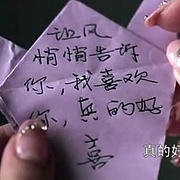 让风
悄悄告诉
你,我喜欢
你,真的好
喜
真的好